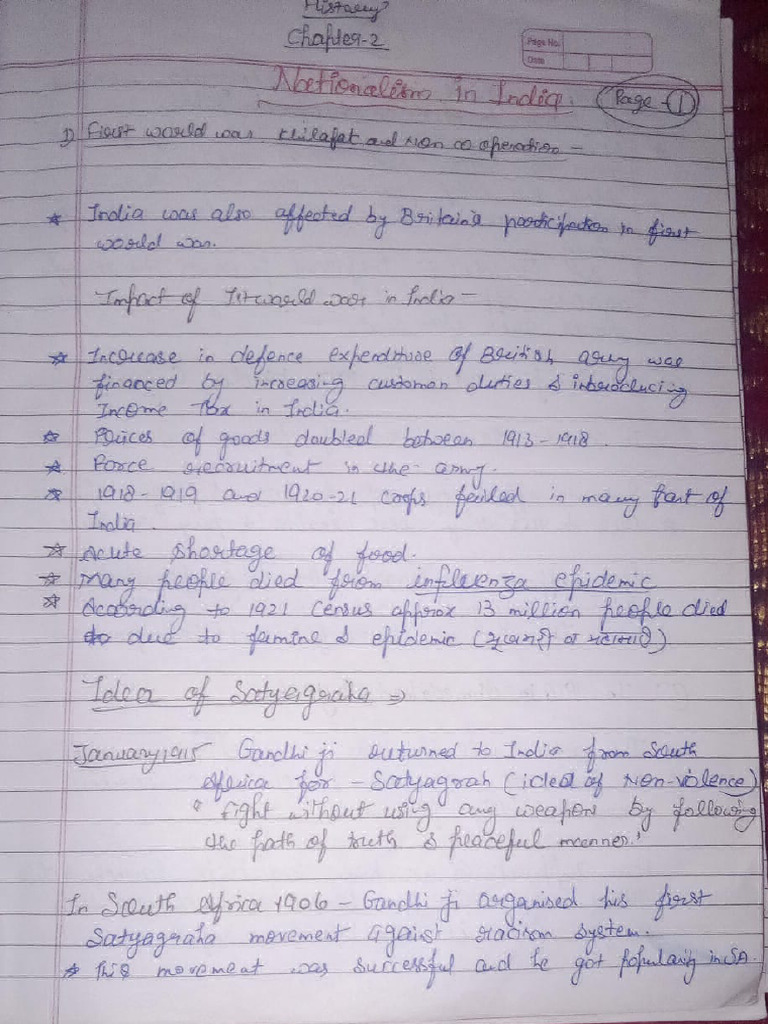 History
Chapter-2
Page No.
Date
Nationalism in India. Page-1
1) First world was Khilafat and Non co operation -
* India was also affected by Britain's participation in first
world war.
Impact of 1st world war in India -
* Increase in defence expenditure of British army was
financed by increasing custom duties & introducing
Income Tax in India.
* Prices of goods doubled between 1913-1918.
* Force recruitment in the army.
* 1918-1919 and 1920-21 crops failed in many part of
India.
* Acute Shortage of food.
* Many people died from influenza epidemic
* According to 1921 Census approx 13 million people died
due to famine & epidemic (भुखमरी व महामारी)
Idea of Satyagraha ⇒
January, 1915 Gandhi ji returned to India from South
Africa for - Satyagrah (idea of Non-violence)
"Fight without using any weapon by following
the path of truth & peaceful manner."
In South Africa 1906 - Gandhi ji organised his first
Satyagraha movement against racism system.
* This movement was successful and he got popularity in SA.